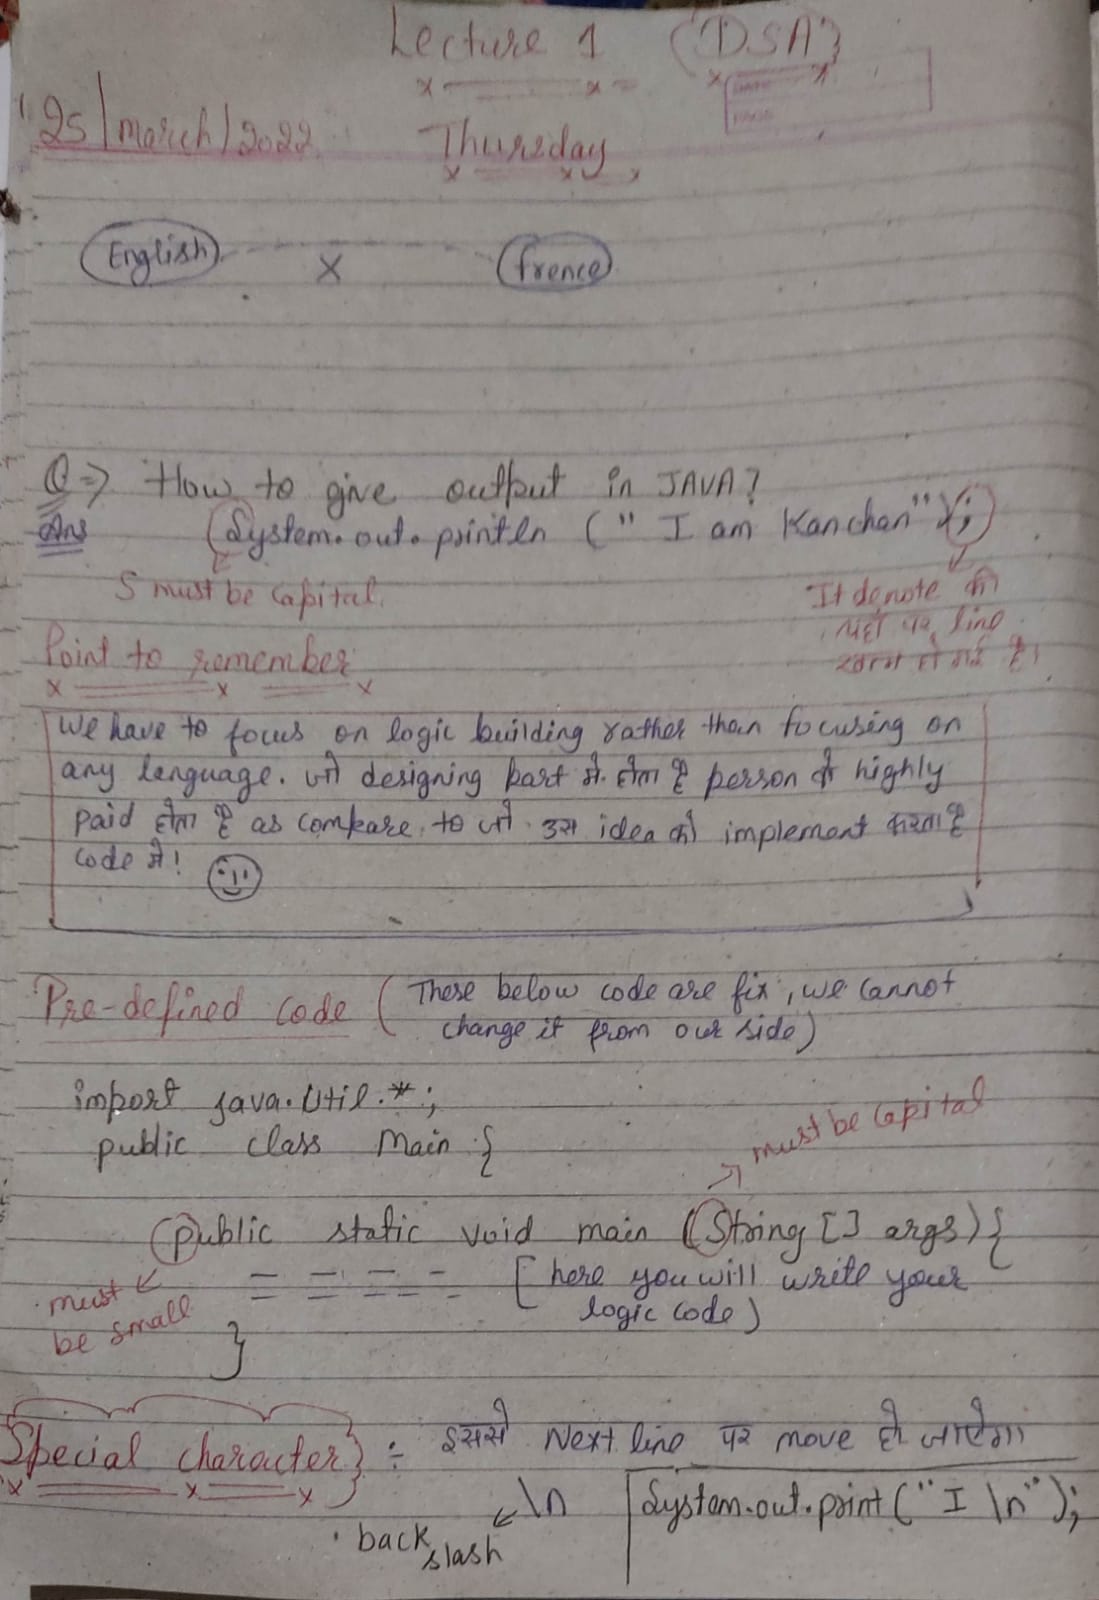 Lecture 1 (DSA)
DATE
PAGE
25/march/2022 Thursday
English x frence
Q => How to give output in JAVA?
Ans System.out.println (" I am Kanchan");
S must be capital.
It denote की
यहाँ पर line
खत्म हो गई है।
Point to remember
We have to focus on logic building rather than focusing on
any language. जो designing part मे होता है person वो highly
paid होता है as compare to जो उस idea को implement करता है
code मे!
Pre-defined code (These below code are fix, we cannot
change it from our side)
import java.util.*;
public class Main {
must be capital
public static void main (String [] args) {
[here you will write your
logic code)
must
be small
}
Special character} ÷ इससे Next line पर move हो जाऐगा
\n System.out.print ("I \n");
back
slash